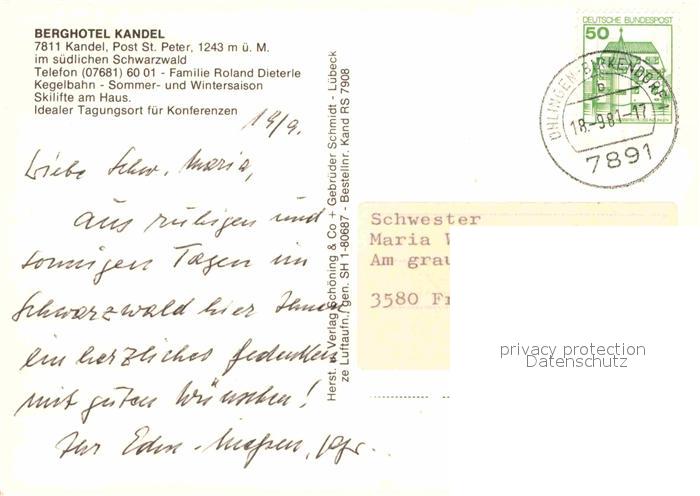 BERGHOTEL KANDEL
7811 Kandel, Post St. Peter, 1243 m ü. M.
im südlichen Schwarzwald
Telefon (07681) 60 01 - Familie Roland Dieterle
Kegelbahn - Sommer- und Wintersaison
Skilifte am Haus.
Idealer Tagungsort für Konferenzen
Herst. u. Verlag Schöning & Co + Gebrüder Schmidt - Lübeck
ze Luftaufn./gen. SH 1-80687 - Bestellnr. Kand RS 7908
DEUTSCHE BUNDESPOST
50
ÜHLINGEN-BIRKENDORF 1
b
18.-9.81-17
7891
Liebe Schw. Maria,
aus ruhigen und
sonnigen Tagen im
Schwarzwald hier Ihnen
ein herzliches Gedenken
mit guten Wünschen!
Ihr
Schwester
Maria
Am grau
3580 Fr
privacy protection
Datenschutz